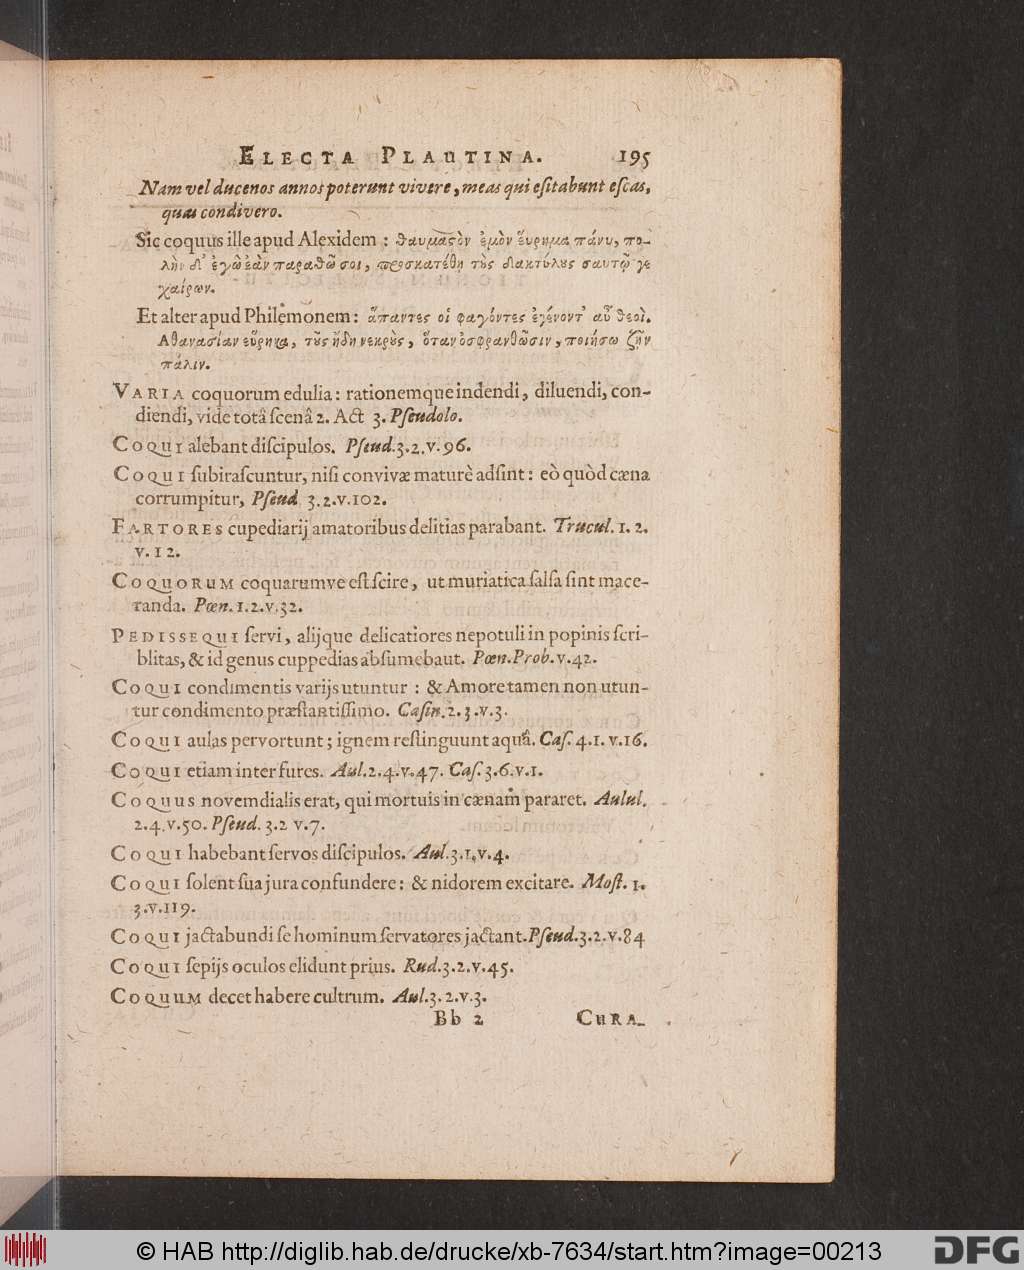 ELECTA PLAUTINA. 195
Nam vel ducenos annos poterunt vivere, meas qui eſitabunt eſcas,
quas condivero.
Sic coquus ille apud Alexidem : θαυμαςὸν ἐμὸν ἕυρημα πάνυ, πο-
λὴν δι᾽ ἐγὼ ἐὰν παραθῶ σοι, προσκατέδη τὸς δακτύλυς σαυτῷ γε
χαίρων.
Et alter apud Philemonem : ἅπαντες οἱ φαγόντες ἐγένοντ᾽ αὖ θεοὶ.
Αθανασίαν εὕρηκα, τοὺς ἤδη νεκροὺς, ὅταν ὀσφρανθῶσιν, ποιήσω ζῆν
πάλιν.
VARIA coquorum edulia : rationemque indendi, diluendi, con-
diendi, vide totâ ſcenâ 2. Act 3. Pſeudolo.
COQUI alebant diſcipulos. Pſeud. 3. 2. v. 96.
COQUI ſubiraſcuntur, niſi convivæ maturè adſint : eò quòd cæna
corrumpitur, Pſeud 3. 2. v. 102.
FARTORES cupediarij amatoribus delitias parabant. Trucul. 1. 2.
v. 12.
COQUORUM coquarumve eſt ſcire, ut muriatica ſalſa ſint mace-
randa. Pœn. 1. 2. v. 32.
PEDISSEQUI ſervi, alijque delicatiores nepotuli in popinis ſcri-
blitas, & id genus cuppedias abſumebaut. Pœn. Prob. v. 42.
COQUI condimentis varijs utuntur : & Amore tamen non utun-
tur condimento præſtantiſſimo. Caſin. 2. 3. v. 3.
COQUI aulas pervortunt ; ignem reſtinguunt aquâ. Caſ. 4. 1. v. 16.
COQUI etiam inter fures. Aul. 2. 4. v. 47. Caſ. 3. 6. v. 1.
COQUUS novemdialis erat, qui mortuis in cænam pararet. Aulul.
2. 4. v. 50. Pſeud. 3. 2 v. 7.
COQUI habebant ſervos diſcipulos. Aul. 3. 1. v. 4.
COQUI ſolent ſua jura confundere : & nidorem excitare. Moſt. 1.
3. v. 119.
COQUI jactabundi ſe hominum ſervatores jactant. Pſeud. 3. 2. v. 84
COQUI ſepijs oculos elidunt prius. Rud. 3. 2. v. 45.
COQUUM decet habere cultrum. Aul. 3. 2. v. 3.
Bb 2 CURA-
© HAB http://diglib.hab.de/drucke/xb-7634/start.htm?image=00213
DFG